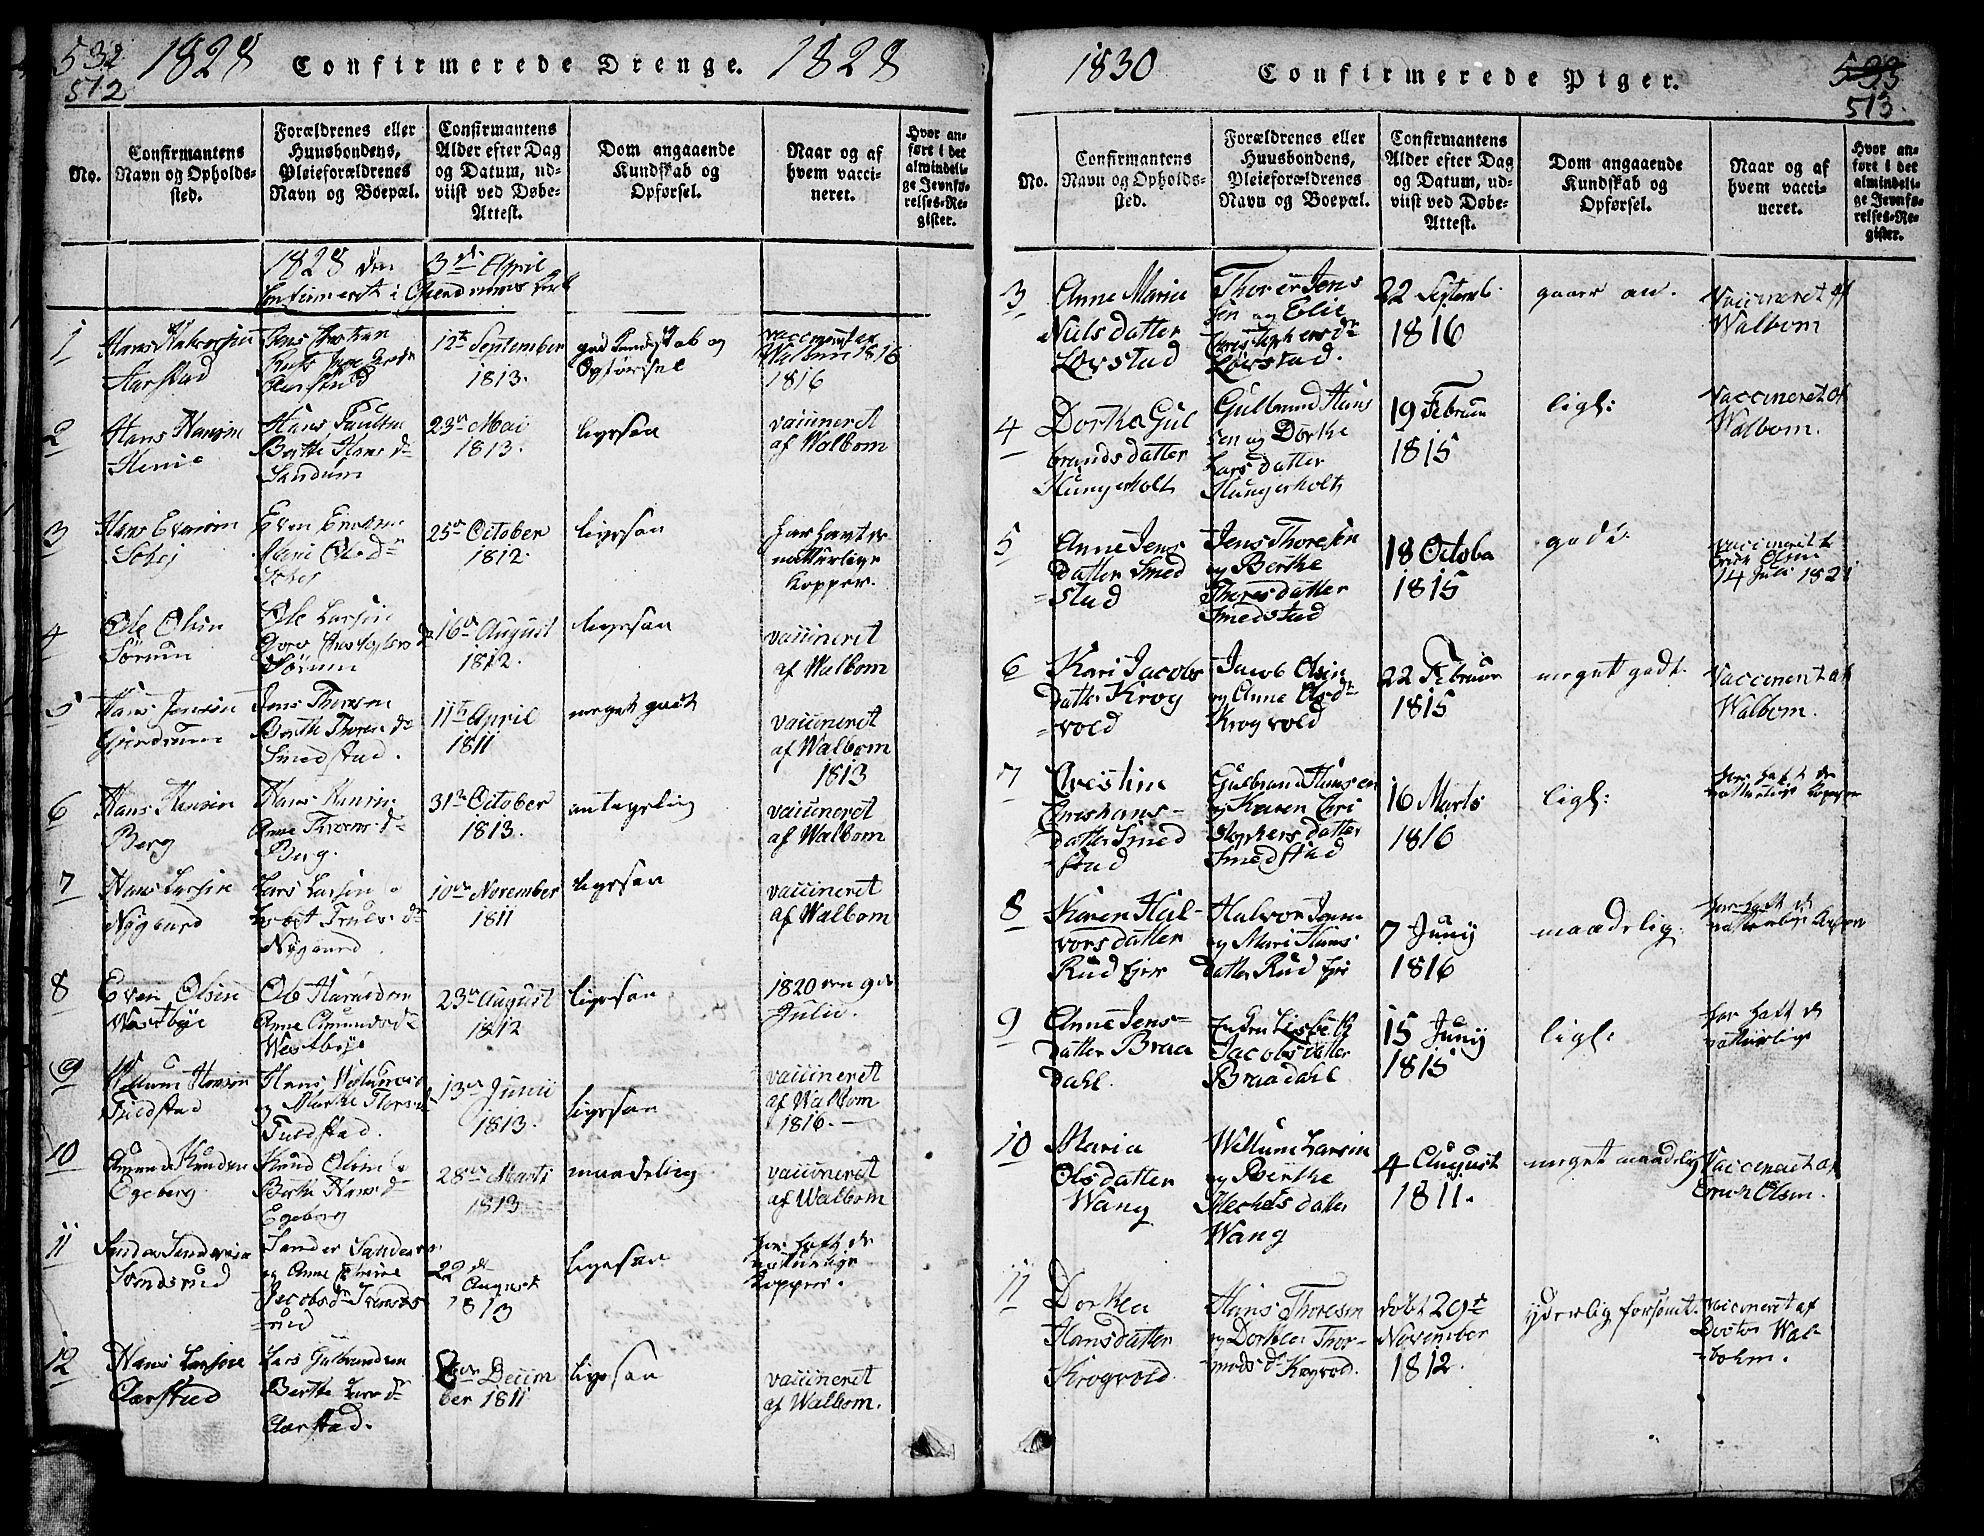 532
512
1828 Confirmerede Drenge. 1828
No.
Confirmantens
Navn og Opholds-
sted.
Forældrenes eller
Huusbondens,
Pleieforældrenes
Navn og Boepæl.
Confirmantens
Alder efter Dag
og Datum, ud-
viist ved Døbe-
Attest.
Dom angaaende
Kundskab og
Opførsel.
Naar og af
hvem vacci-
neret.
Hvor an-
ført i det
almindeli-
ge Jevnfø-
relses-Re-
gister.
1828 den 3de April
Confirmeret i
1
Aarstad
12te September
1813.
god Kundskab og
Opførsel
Walbom 1816
1816
2
Hans Hansen
Hans
Berthe Hans dr
Sandum
23de Mai
1813.
ligesaa
vaccineret
af Walbom
3
Hans Evensen
Even
25de October
1812.
ligesaa
har havt de
naturlige
Kopper.
4
Ole Olsen
Sørum
Ole Larsen
Sørum
16de August
1812.
ligesaa
vaccineret
af Walbom
5
Hans Jensen
Gjerdrum
Jens Thoresen
Berthe Thores dr
Smedstad.
11te April
1811
meget godt
vaccineret
af Walbom
1813
6
Hans Hansen
Berg
Hans Hansen
Anne Thores dr
Berg.
31te October
1813.
antagelig
vaccineret
af Walbom
7
Hans Larsen
Nygaard
Lars Larsen
Truls dr
Nygaard.
10de November
1811
ligesaa
vaccineret
af Walbom
8
Even Olsen
Westbye
Ole
Anne Amunds dr
Westbye
23de August
1812
ligesaa
1820 den 9de
Julii.
9
Hansen
Hans
og Marthe
13de Junii
1813.
ligesaa
vaccineret
af Walbom
1816.
10
Amund Knudsen
Egeberg
Knud Olsen
Berthe Hans dr
Egeberg
28de Marti
1813
maadelig
vaccineret
af Walbom
11
Sander Sandersen
Sander Sandersen
og Anne
Jacobs dr
rud
22de
August
1813
ligesaa
har haft de
naturlige
Kopper.
12
Hans Larsen
Aarstad
Lars Gulbrandsen
Berthe Lars dr
Aarstad.
Decem
ber 1811
ligesaa
vaccineret
af Walbom.
1830 Confirmerede Piger. 533
513.
No.
Confirmantens
Navn og Opholds-
sted.
Forældrenes eller
Huusbondens,
Pleieforældrenes
Navn og Boepæl.
Confirmantens
Alder efter Dag
og Datum, ud-
viist ved Døbe-
Attest.
Dom angaaende
Kundskab og
Opførsel.
Naar og af
hvem vacci-
neret.
Hvor an-
ført i det
almindeli-
ge Jevnfø-
relses-Re-
gister.
3
Anne Maria
Niels datter
Lørstad
Thorer Jens
sen og Elie
Christophers dr
Lørstad.
22 Septemb.
1816
gaaer an.
Vaccineret af
Walbom
4
Dorthe Gul
brands datter
Hungerholt
Gulbrand Hans
sen og Dorthe
Lars datter
Hungerholt
19 Februar
1815
ligl:
Vaccineret af
Walbom.
5
Anne Jens
datter Smed
stad
Jens Thoresen
og Berthe
Thores datter
Smedstad
18 Octobr
1815
godt
vaccineret
Erich Olsen
14 Juli 182
6
Kari Jacobs
datter Krog
vold
Jacob Olsen
og Anne Ols dr
Krogvold
22 Februar
1815
meget godt.
Vaccineret af
Walbom.
7
datter Smed
stad
Gulbrand Hansen
og Karen Chri
stophers datter
Smedstad
16 Marts
1816
ligl:
har haft de
naturlige Kopper
8
Karen Hal-
vors datter
Rud Eier
Halvor
og Mari Hans
datter Rud Eier
7 Junij
1816
maadelig.
har haft de
naturlige Kopper
9
Anne Jens-
datter Braa
dahl.
Lisbeth
Jacobs datter
Braadahl
15 Junij
1815
ligl:
har haft de
naturlige
10
Maria
Ols datter
Wang
Willum Larsen
og Berthe
datter
Wang
4 August
1811.
meget maadelig
Vaccineret af
Erich Olsen.
11
Dorthea
Hans datter
Krogvold
Hans Thoresen
og Dorthea Thor-
mods dr Krogvold.
døbt 29de
November
1812.
yderlig forsømt.
vaccineret af
Doctor Wal-
bohm.